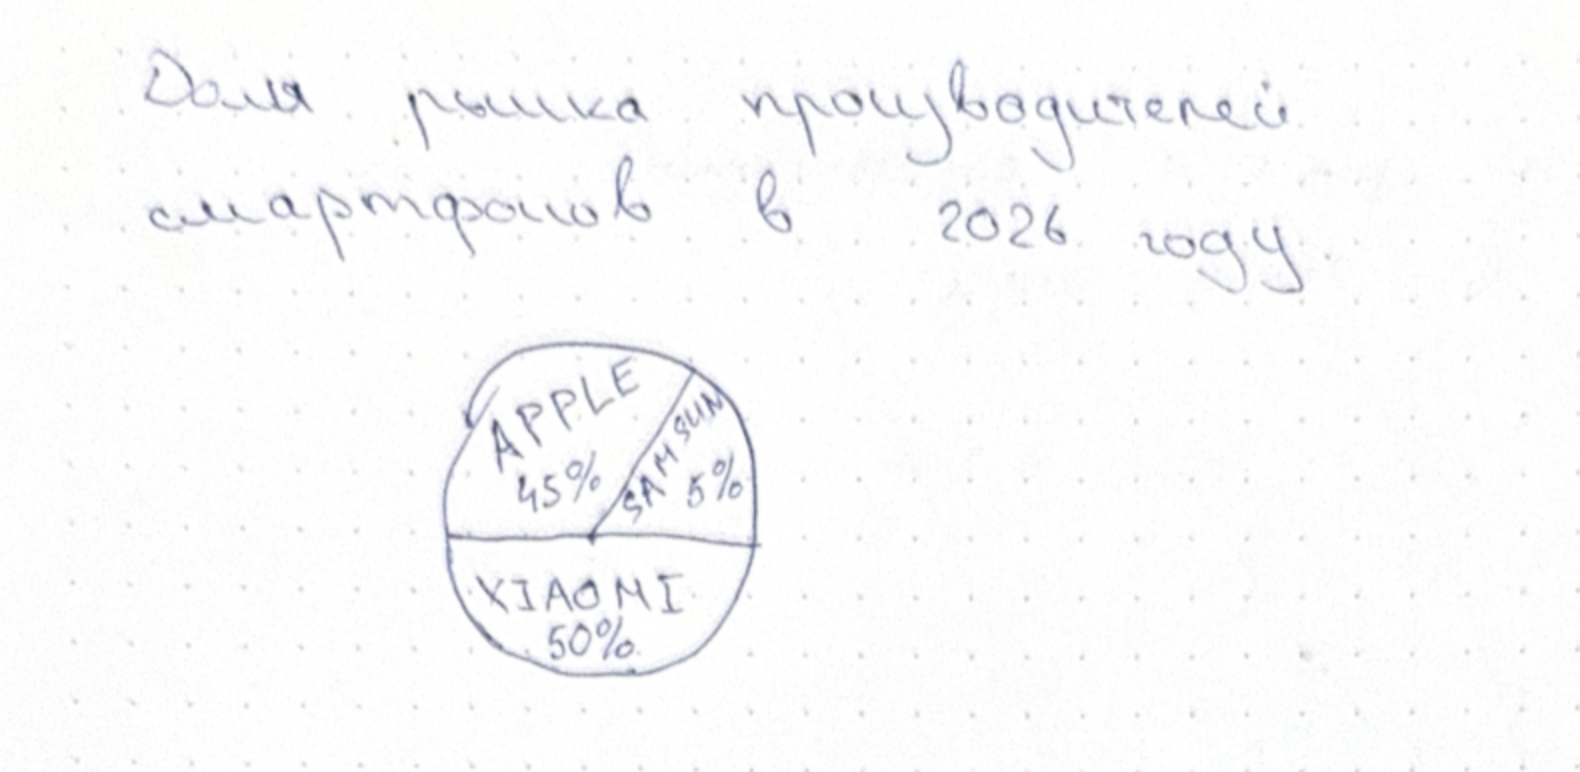 Доля рынка производителей
смартфонов в 2026 году
APPLE
45%
SAMSUM
5%
XIAOMI
50%